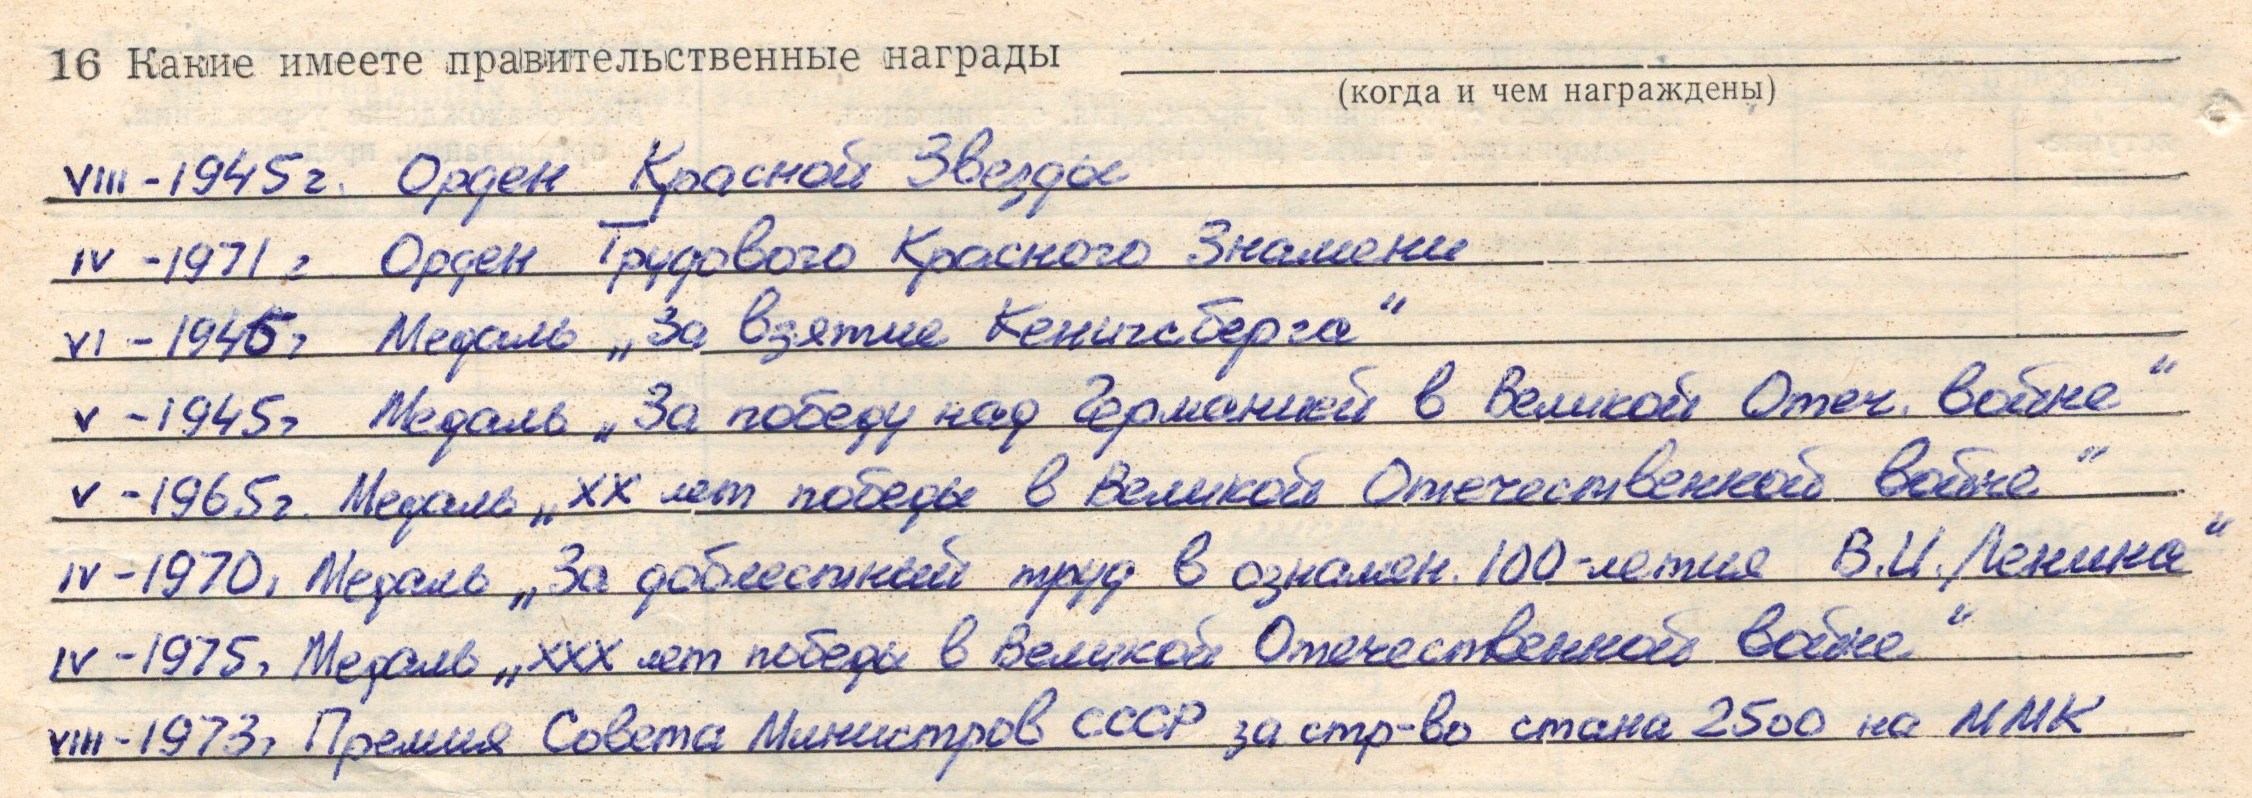 16 Какие имеете правительственные награды
(когда и чем награждены)
VIII-1945г. Орден Красной Звезды
IV-1971г Орден Трудового Красного Знамени
VI-1945г Медаль „За взятие Кенигсберга“
V-1945г Медаль „За победу над Германией в Великой Отеч. войне“
V-1965г. Медаль „XX лет победы в Великой Отечественной войне“
IV-1970г Медаль „За доблестный труд в ознамен. 100-летия В.И. Ленина“
IV-1975г Медаль „XXX лет победы в Великой Отечественной войне“
VIII-1973г Премия Совета Министров СССР за стр-во стана 2500 на ММК